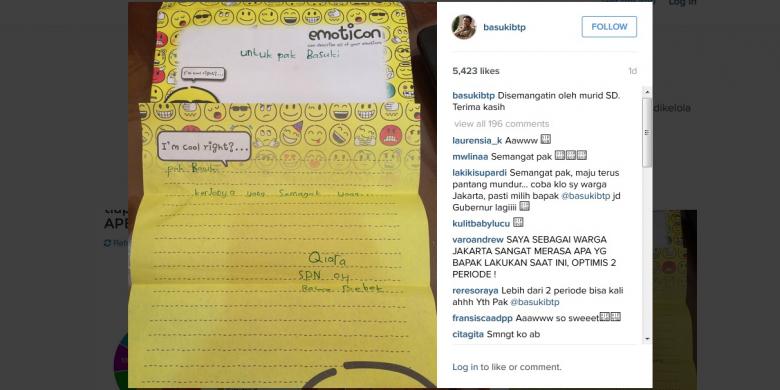 emoticon
can describe all of your emotions
untuk pak Basuki
I'm cool right?...
I'm cool right?...
pak Basuki
kerjanya yang Semangat yaaa...
Qiara
SDN 04
basukibtp
FOLLOW
5,423 likes
1d
basukibtp Disemangatin oleh murid SD.
Terima kasih
view all 196 comments
laurensia_k Aawww
mwlinaa Semangat pak
lakikisupardi Semangat pak, maju terus
pantang mundur... coba klo sy warga
Jakarta, pasti milih bapak @basukibtp jd
Gubernur lagiiii
kulitbabylucu
varoandrew SAYA SEBAGAI WARGA
JAKARTA SANGAT MERASA APA YG
BAPAK LAKUKAN SAAT INI, OPTIMIS 2
PERIODE !
reresoraya Lebih dari 2 periode bisa kali
ahhh Yth Pak @basukibtp
fransiscaadpp Aaawww so sweeet
citagita Smngt ko ab
Log in to like or comment.
Log in
dikelola